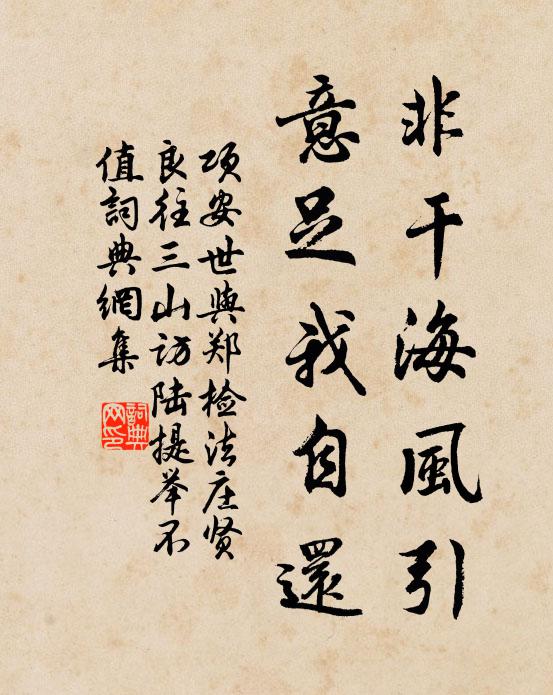 非干海風引
意足我自還
项安世與郑检法庄贤
良往三山访陆提举不
值詞典網集
詞典
网印